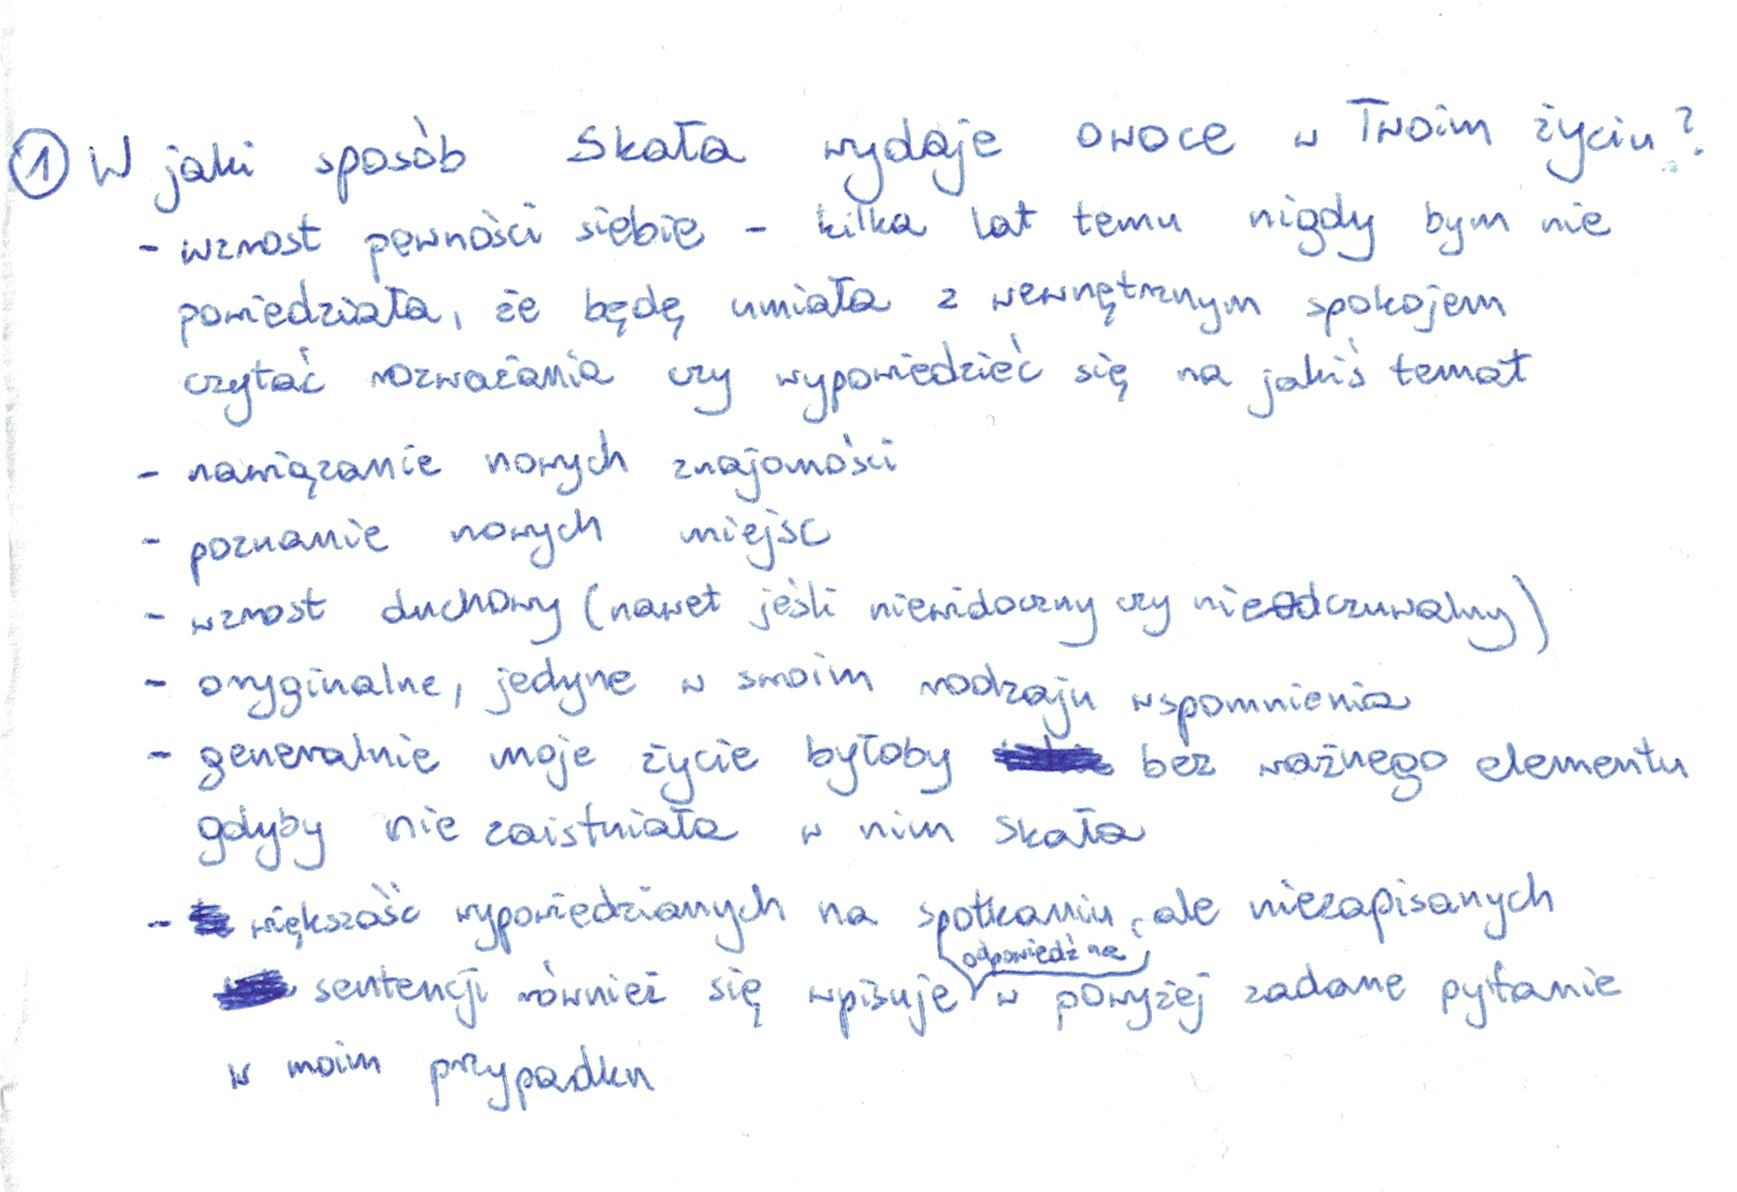 ① W jaki sposób Skała wydaje owoce w Twoim życiu?
- wzrost pewności siebie - kilka lat temu nigdy bym nie
powiedziała, że będę umiała z wewnętrznym spokojem
czytać rozważania czy wypowiedzieć się na jakiś temat
- nawiązanie nowych znajomości
- poznanie nowych miejsc
- wzrost duchowy (nawet jeśli niewidoczny czy nieodczuwalny)
- oryginalne, jedyne w swoim rodzaju wspomnienia
- generalnie moje życie byłoby bez ważnego elementu
gdyby nie zaistniała w nim Skała
- większość wypowiedzianych na spotkaniu, ale niezapisanych
odpowiedź na
sentencji również się wpisuje w powyżej zadane pytanie
w moim przypadku